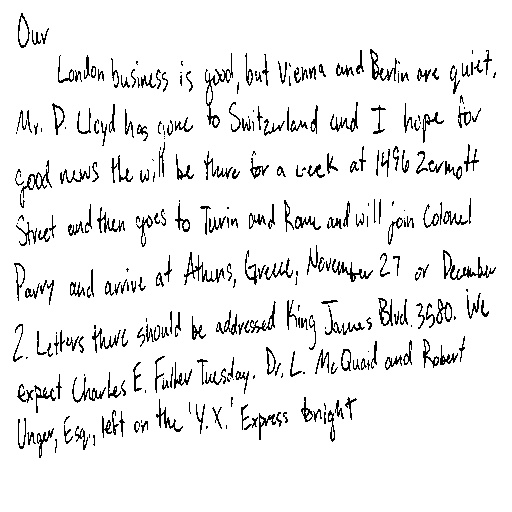 Our
London business is good, but Vienna and Berlin are quiet.
Mr. D. Lloyd has gone to Switzerland and I hope for
good news the will be there for a week at 1496 Zermott
Street and then goes to Turin and Rome and will join Colonel
Parry and arrive at Athens, Greece, November 27 or December
2. Letters there should be addressed King James Blvd. 3580. We
expect Charles E. Fuller Tuesday. Dr. L. McQuaid and Robert
Unger, Esq., left on the 'Y.X.' Express tonight